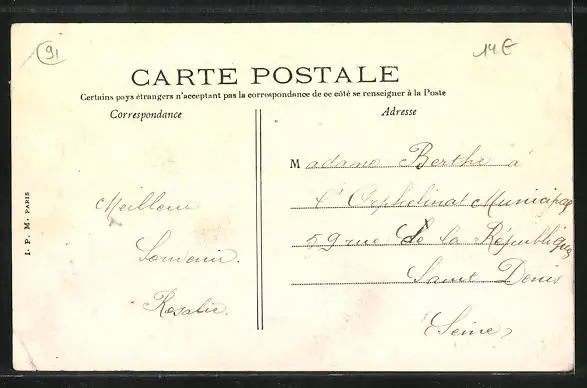 91
14 E
CARTE POSTALE
Certains pays étrangers n'acceptant pas la correspondance de ce côté se renseigner à la Poste
Correspondance
Adresse
Madame Berthe à
l'Orphelinat Municipal
59 rue de la République
Saint Denis
(Seine)
Meilleur
Souvenir.
Rosalie.
I. P. M. PARIS